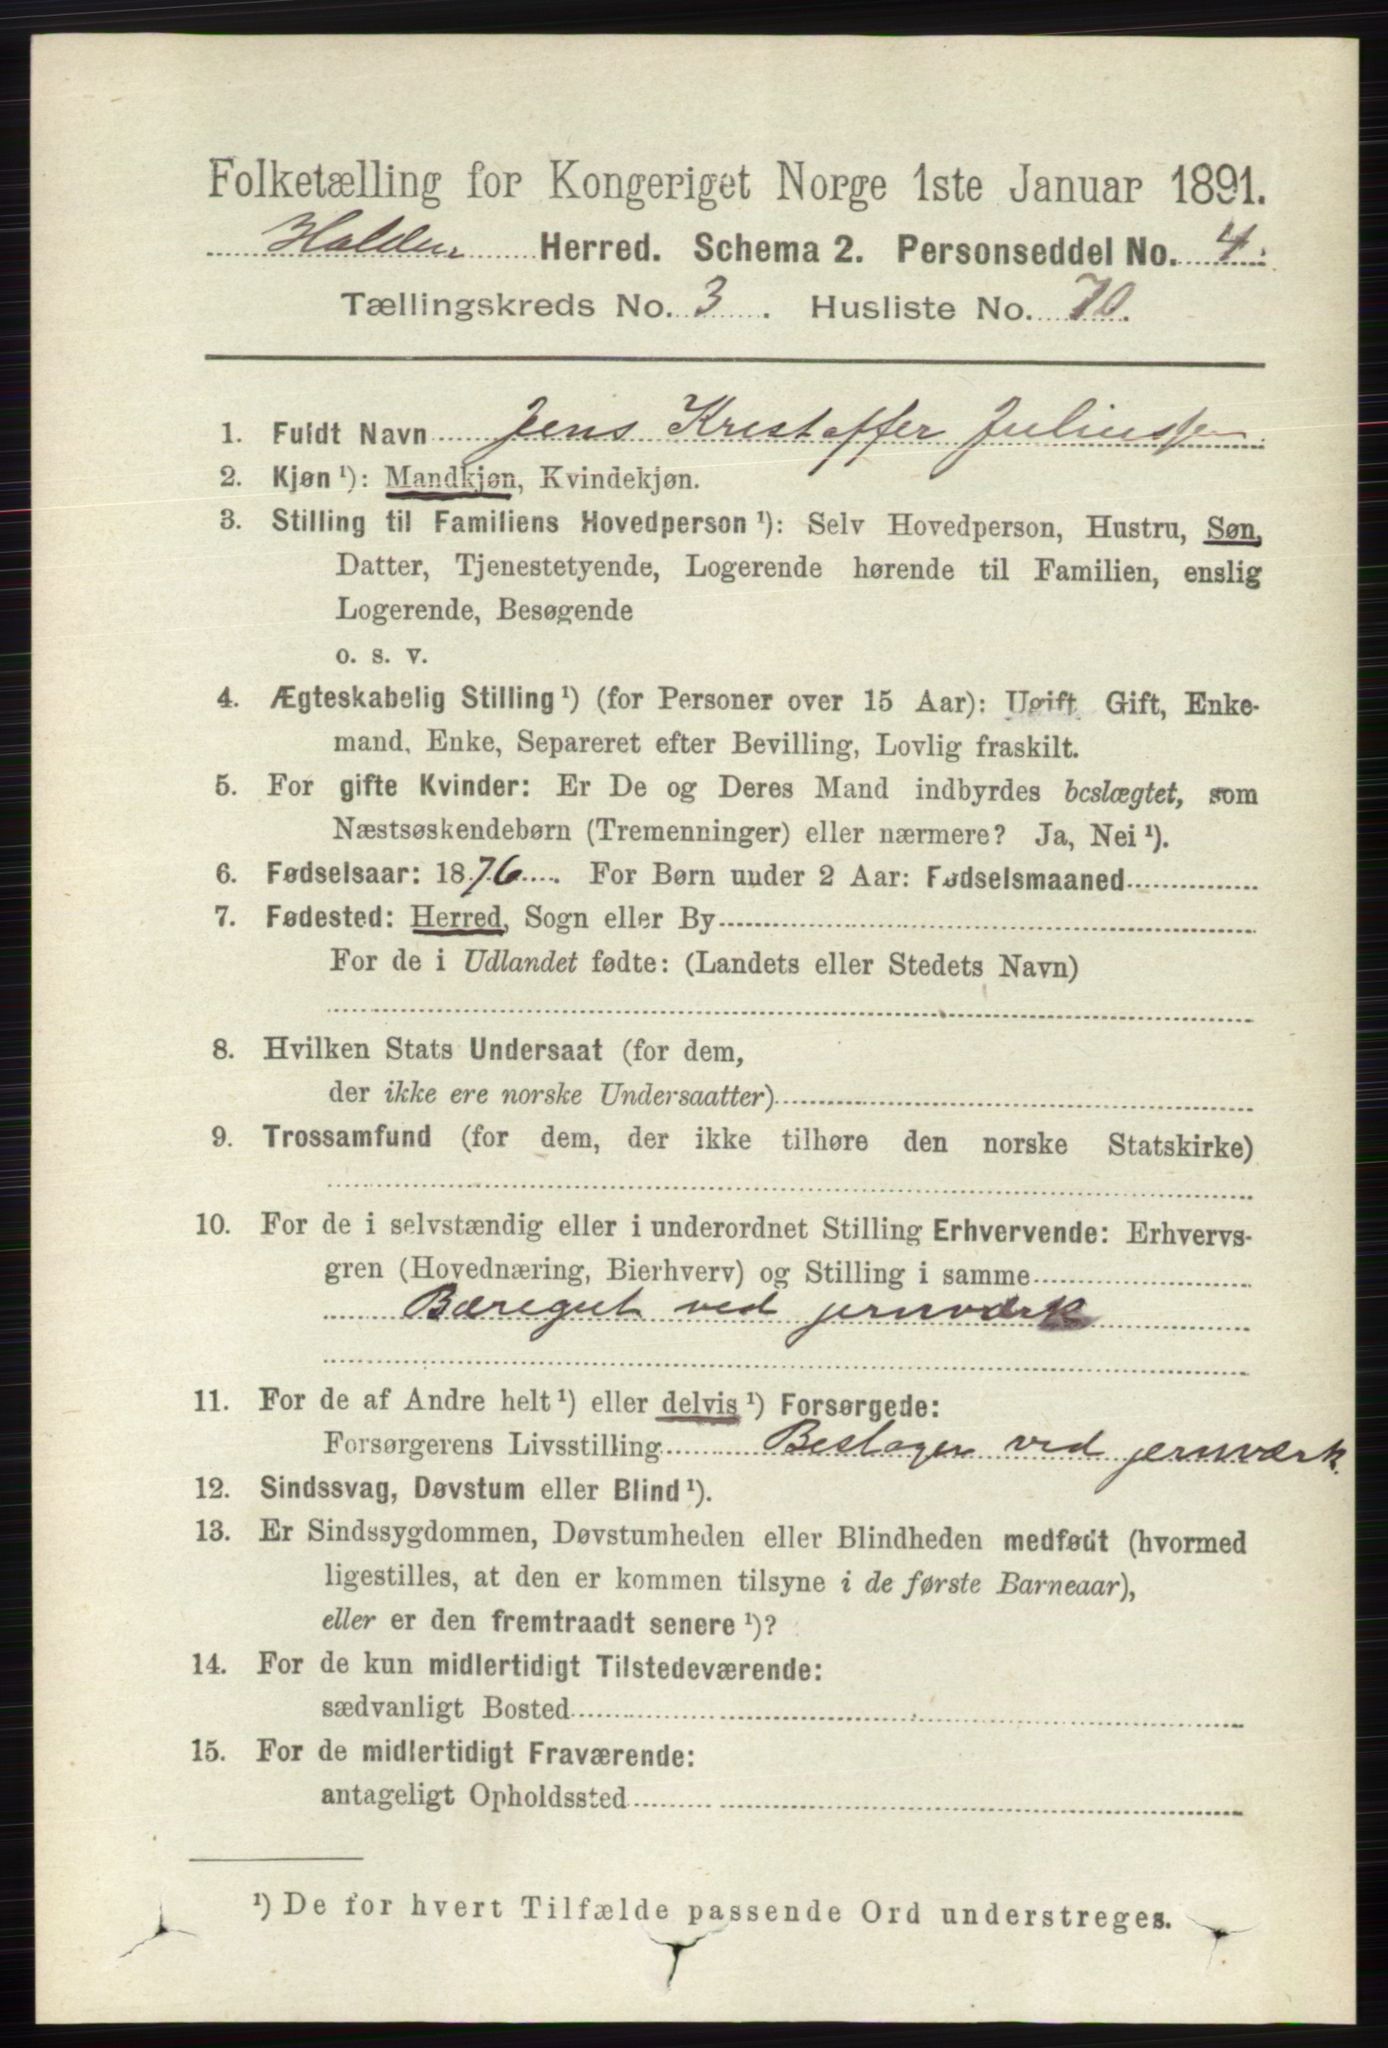 Folketælling for Kongeriget Norge 1ste Januar 1891.
Holden Herred. Schema 2. Personseddel No. 4.
Tællingskreds No. 3. Husliste No. 70.
1. Fuldt Navn Jens Kristoffer Juliussen
2. Kjøn ¹): Mandkjøn, Kvindekjøn.
3. Stilling til Familiens Hovedperson ¹): Selv Hovedperson, Hustru, Søn,
Datter, Tjenestetyende, Logerende hørende til Familien, enslig
Logerende, Besøgende
o. s. v.
4. Ægteskabelig Stilling ¹) (for Personer over 15 Aar): Ugift, Gift, Enke-
mand, Enke, Separeret efter Bevilling, Lovlig fraskilt.
5. For gifte Kvinder: Er De og Deres Mand indbyrdes beslægtet, som
Næstsøskendebørn (Tremenninger) eller nærmere? Ja, Nei ¹).
6. Fødselsaar: 1876. For Børn under 2 Aar: Fødselsmaaned
7. Fødested: Herred, Sogn eller By
For de i Udlandet fødte: (Landets eller Stedets Navn)
8. Hvilken Stats Undersaat (for dem,
der ikke ere norske Undersaatter)
9. Trossamfund (for dem, der ikke tilhøre den norske Statskirke)
10. For de i selvstændig eller i underordnet Stilling Erhvervende: Erhvervs-
gren (Hovednæring, Bierhverv) og Stilling i samme
Bæregut ved jernværk
11. For de af Andre helt ¹) eller delvis ¹) Forsørgede:
Forsørgerens Livsstilling Beslager ved jernværk.
12. Sindssvag, Døvstum eller Blind ¹).
13. Er Sindssygdommen, Døvstumheden eller Blindheden medfødt (hvormed
ligestilles, at den er kommen tilsyne i de første Barneaar),
eller er den fremtraadt senere ¹)?
14. For de kun midlertidigt Tilstedeværende:
sædvanligt Bosted
15. For de midlertidigt Fraværende:
antageligt Opholdssted
¹) De for hvert Tilfælde passende Ord understreges.